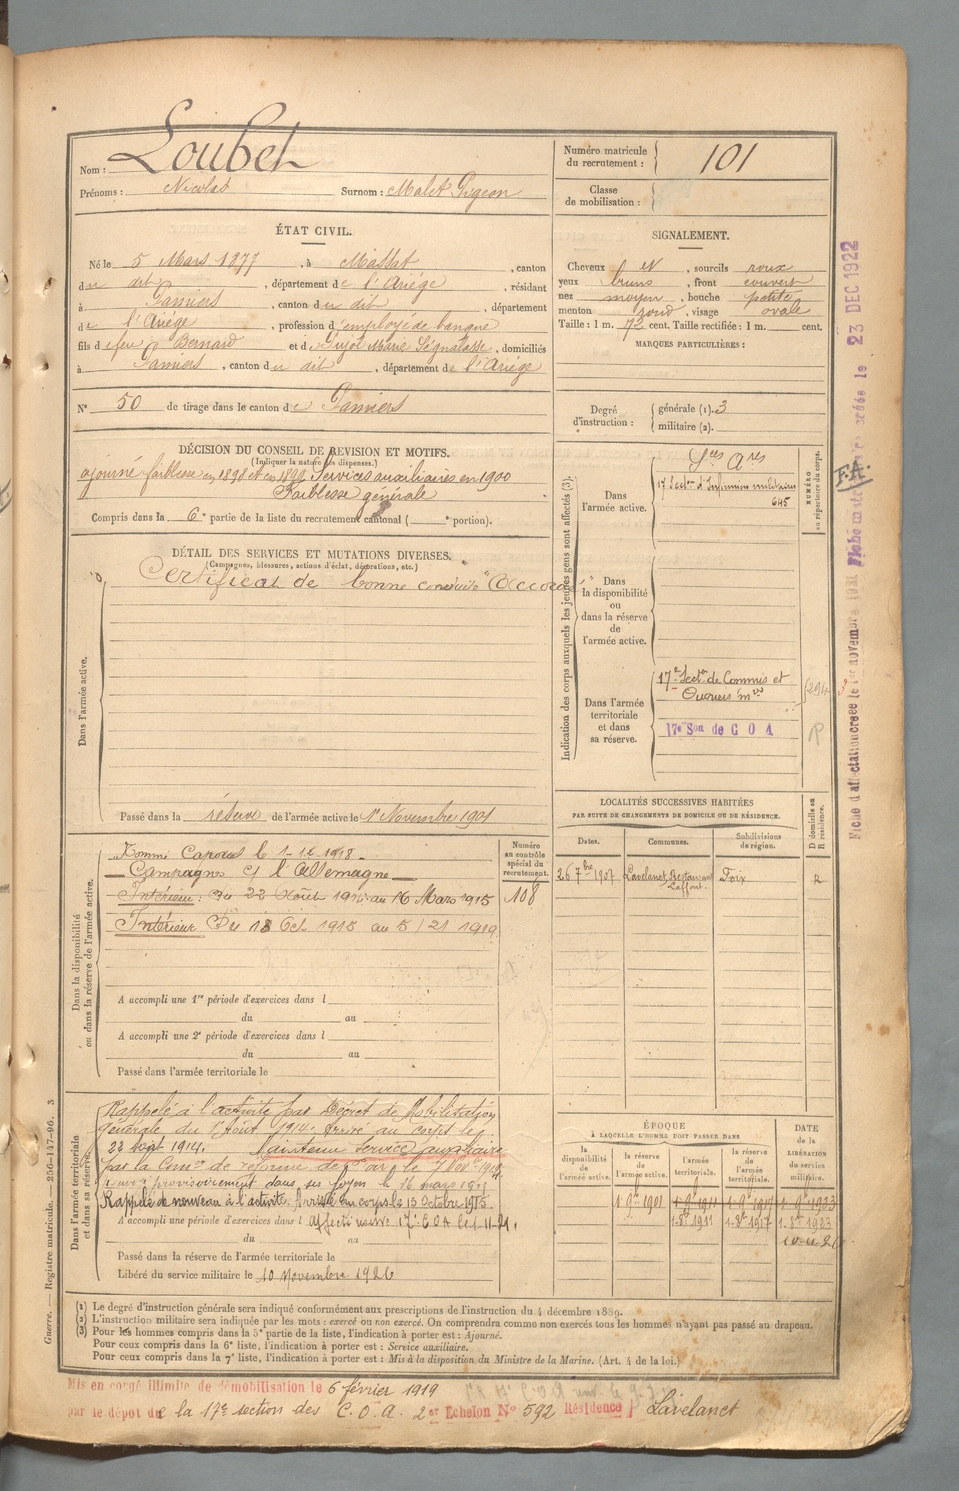 Nom : Loubet
Prénoms : Nicolas Surnom : Malet Pigeon
Numéro matricule du recrutement : 101
Classe de mobilisation :
ÉTAT CIVIL.
Né le 5 Mars 1877, à Massat, canton
du dit, département de l'Ariège, résidant
à Pamiers, canton du dit, département
de l'Ariège, profession d'employé de banque
fils de feu Bernard et de Marie, domiciliés
à Pamiers, canton du dit, département de l'Ariège
N° 50 de tirage dans le canton de Pamiers
SIGNALEMENT.
Cheveux et, sourcils roux
yeux bruns, front couvert
nez moyen, bouche petite
menton rond, visage ovale
Taille : 1 m. 72 cent. Taille rectifiée : 1 m. cent.
MARQUES PARTICULIÈRES :
Degré d'instruction : générale (1). 3
militaire (2).
DÉCISION DU CONSEIL DE REVISION ET MOTIFS.
(Indiquer la nature des dispenses.)
ajourné faiblesse en 1898 et en 1899 Services auxiliaires en 1900
Faiblesse générale
Compris dans la 6e partie de la liste du recrutement cantonal ( e portion).
DÉTAIL DES SERVICES ET MUTATIONS DIVERSES.
(Campagnes, blessures, actions d'éclat, décorations, etc.)
Certificat de bonne conduite
Dans l'armée active.
Passé dans la réserve de l'armée active le 1er Novembre 1901
Indication des corps auxquels les jeunes gens sont affectés (3).
NUMÉRO au répertoire du corps.
Dans l'armée active.
17e Section d'Infirmiers militaires
645
Dans la disponibilité ou dans la réserve de l'armée active.
Dans l'armée territoriale et dans sa réserve.
17e Section de Commis et
Ouvriers mres
17e Son de C O A
F.A.
Fiche d'affectation créée le 1er novembre
créée le 23 DEC 1922
LOCALITÉS SUCCESSIVES HABITÉES
PAR SUITE DE CHANGEMENTS DE DOMICILE OU DE RÉSIDENCE.
Dates. Communes. Subdivisions de région. D domicile ou R résidence.
26 7bre 1907 Lavelanet Restaurant Laffont. Foix R
Dans la disponibilité ou dans la réserve de l'armée active.
Numéro au contrôle spécial du recrutement.
108
Nommé Caporal le 1-12-1918
Campagnes c/ l'Allemagne
Intérieur : Du 22 Août 1914 au 16 Mars 1915
Intérieur Du 13 Oct 1915 au 5/21 1919
A accompli une 1re période d'exercices dans l
du au
A accompli une 2e période d'exercices dans l
du au
Passé dans l'armée territoriale le
Dans l'armée territoriale et dans sa réserve.
Rappelé à l'activité par Décret de Mobilisation
Générale du 1er Août 1914. Arrivé au corps le
22 août 1914. Maintenu Service auxiliaire
par la Comon de réforme de
renvoyé provisoirement dans ses foyers le 16 mars 1915
Rappelé de nouveau à l'activité. Arrivé au corps le 13 Octobre 1915
A accompli une période d'exercices dans l
du au
Passé dans la réserve de l'armée territoriale le
Libéré du service militaire le 10 Novembre 1926
ÉPOQUE
A LAQUELLE L'HOMME DOIT PASSER DANS
la disponibilité. la réserve de l'armée active. l'armée territoriale. la réserve de l'armée territoriale.
DATE de la LIBÉRATION du service militaire.
1 9bre 1901 1 9bre 1911 1 9bre 1917 1 9bre 1923
1-8bre 1911 1-8bre 1917 1-8bre 1923
(1) Le degré d'instruction générale sera indiqué conformément aux prescriptions de l'instruction du 4 décembre 1889.
(2) L'instruction militaire sera indiquée par les mots : exercé ou non exercé. On comprendra comme non exercés tous les hommes n'ayant pas passé au drapeau.
(3) Pour les hommes compris dans la 5e partie de la liste, l'indication à porter est : Ajourné.
Pour ceux compris dans la 6e liste, l'indication à porter est : Service auxiliaire.
Pour ceux compris dans la 7e liste, l'indication à porter est : Mis à la disposition du Ministre de la Marine. (Art. 4 de la loi.)
Guerre. — Registre matricule. — 256-147-96. 3
Mis en congé illimité de démobilisation le 6 février 1919
par le dépot de la 17e section des C.O.A. 2er Echelon N° 592 Résidence Lavelanet